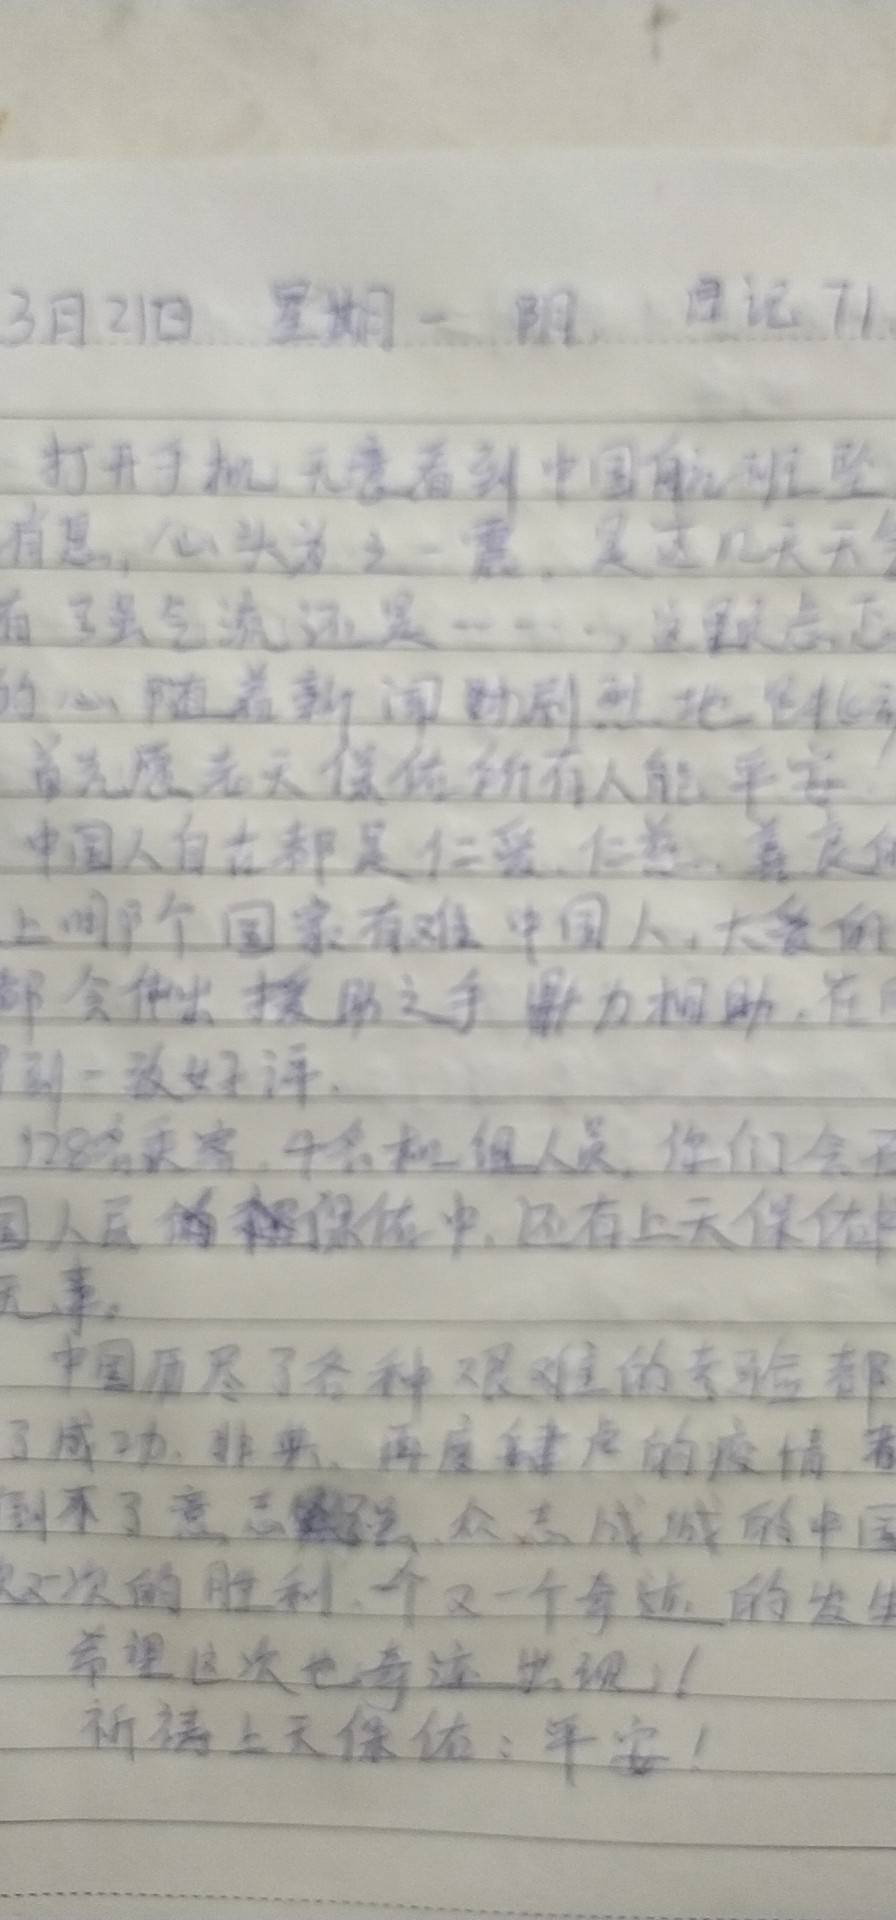 3月21日 星期一 阴 日记71
打开手机无意看到中国航班坠
消息,心头为之一震,是这几天天气
有了强气流还是……,
的心随着新闻剧烈地
首先愿老天保佑所有人能平安
中国人自古都是仁爱、仁慈、善良的
上哪个国家有难中国人,大爱的
都会伸出援助之手鼎力相助,在
得到一致好评.
128名乘客,9名机组人员,你们会
国人民的保佑中,还有上天保佑
无事。
中国历尽了各种艰难的考验都
了成功、非典、再度肆虐的疫情
倒不了意志坚强、众志成城的中国
次又一次的胜利,一个又一个奇迹的发生
希望这次也奇迹出现!
祈祷上天保佑:平安!